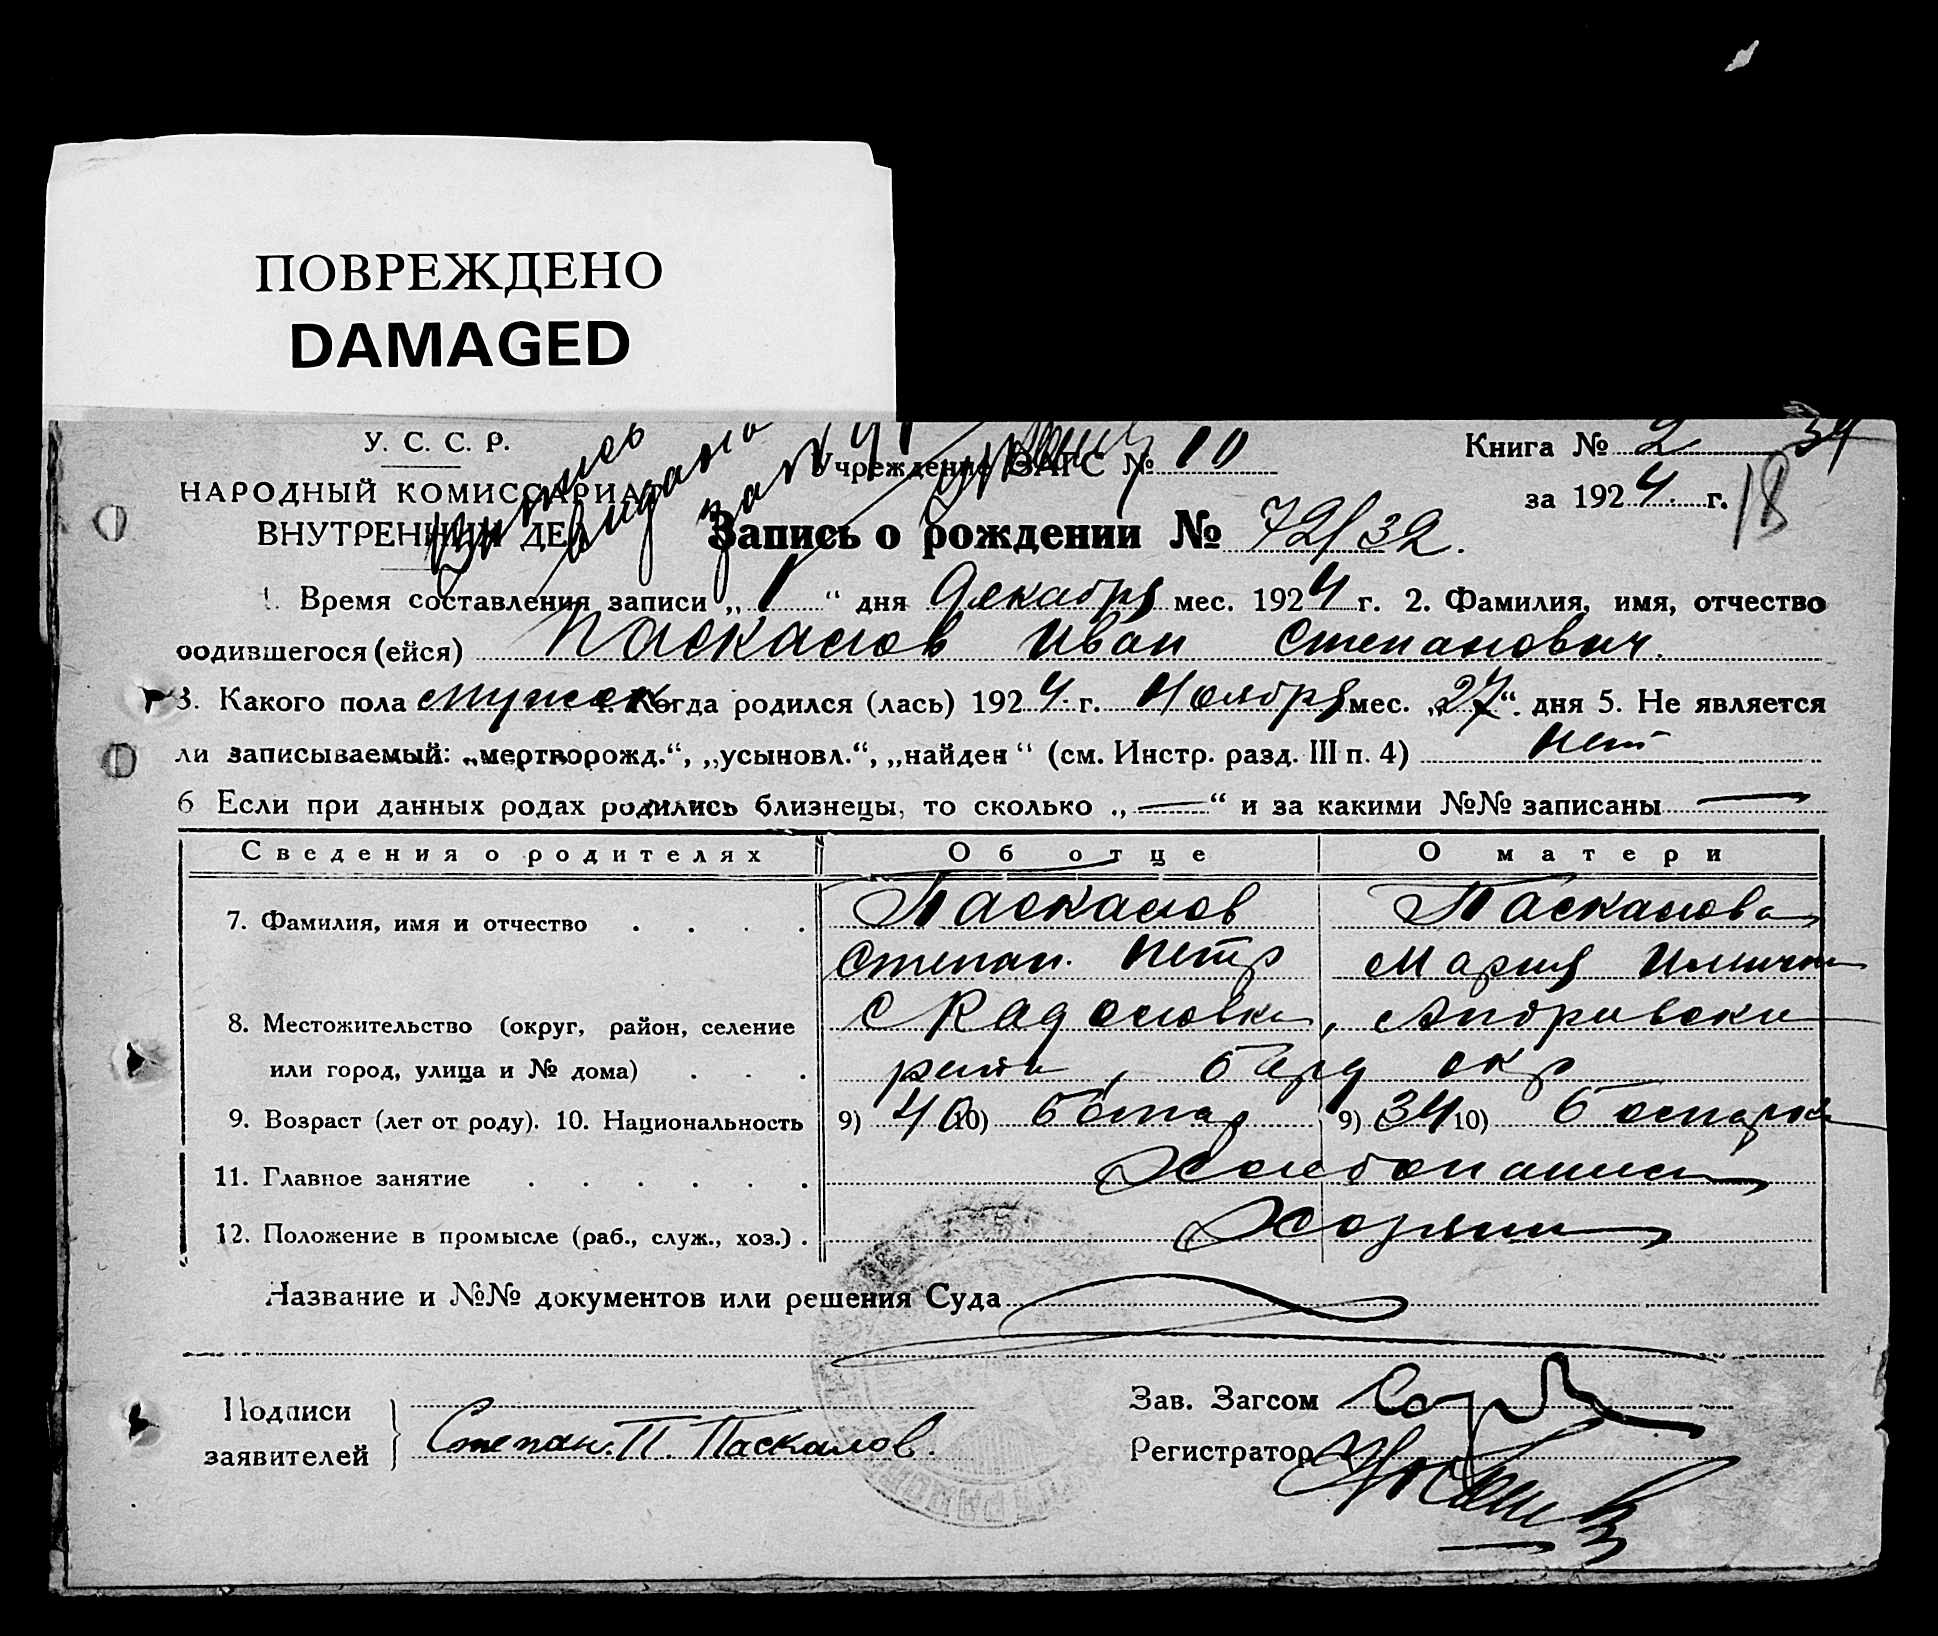 ПОВРЕЖДЕНО
DAMAGED
У. С. С. Р.
НАРОДНЫЙ КОМИССАРИАТ
ВНУТРЕННИХ ДЕЛ
Выпись
выдана
Учреждение ЗАГС № 10
Книга № 2
34
за 1924 г.
18
Запись о рождении № 72/32.
1. Время составления записи „1“ дня Декабря мес. 1924 г. 2. Фамилия, имя, отчество
родившегося (ейся) Паскалов Иван Степанович.
3. Какого пола мужск 4. Когда родился (лась) 1924 г. Ноября мес. „27“ дня 5. Не является
ли записываемый: „мертворожд.“, „усыновл.“, „найден“ (см. Инстр. разд. III п. 4) нет
6 Если при данных родах родились близнецы, то сколько „—“ и за какими №№ записаны —
Сведения о родителях Об отце О матери
7. Фамилия, имя и отчество . . . . Паскалов Паскалова
Степан. Петр Мария
8. Местожительство (округ, район, селение
или город, улица и № дома) . . . окр
9. Возраст (лет от роду). 10. Национальность 9) 40 10) 9) 34 10)
11. Главное занятие . . . . . . Хлебопашест
12. Положение в промысле (раб., служ., хоз.) . Хозяин
Название и №№ документов или решения Суда
Подписи
заявителей
Степан. П. Паскалов.
Зав. Загсом
Регистратор